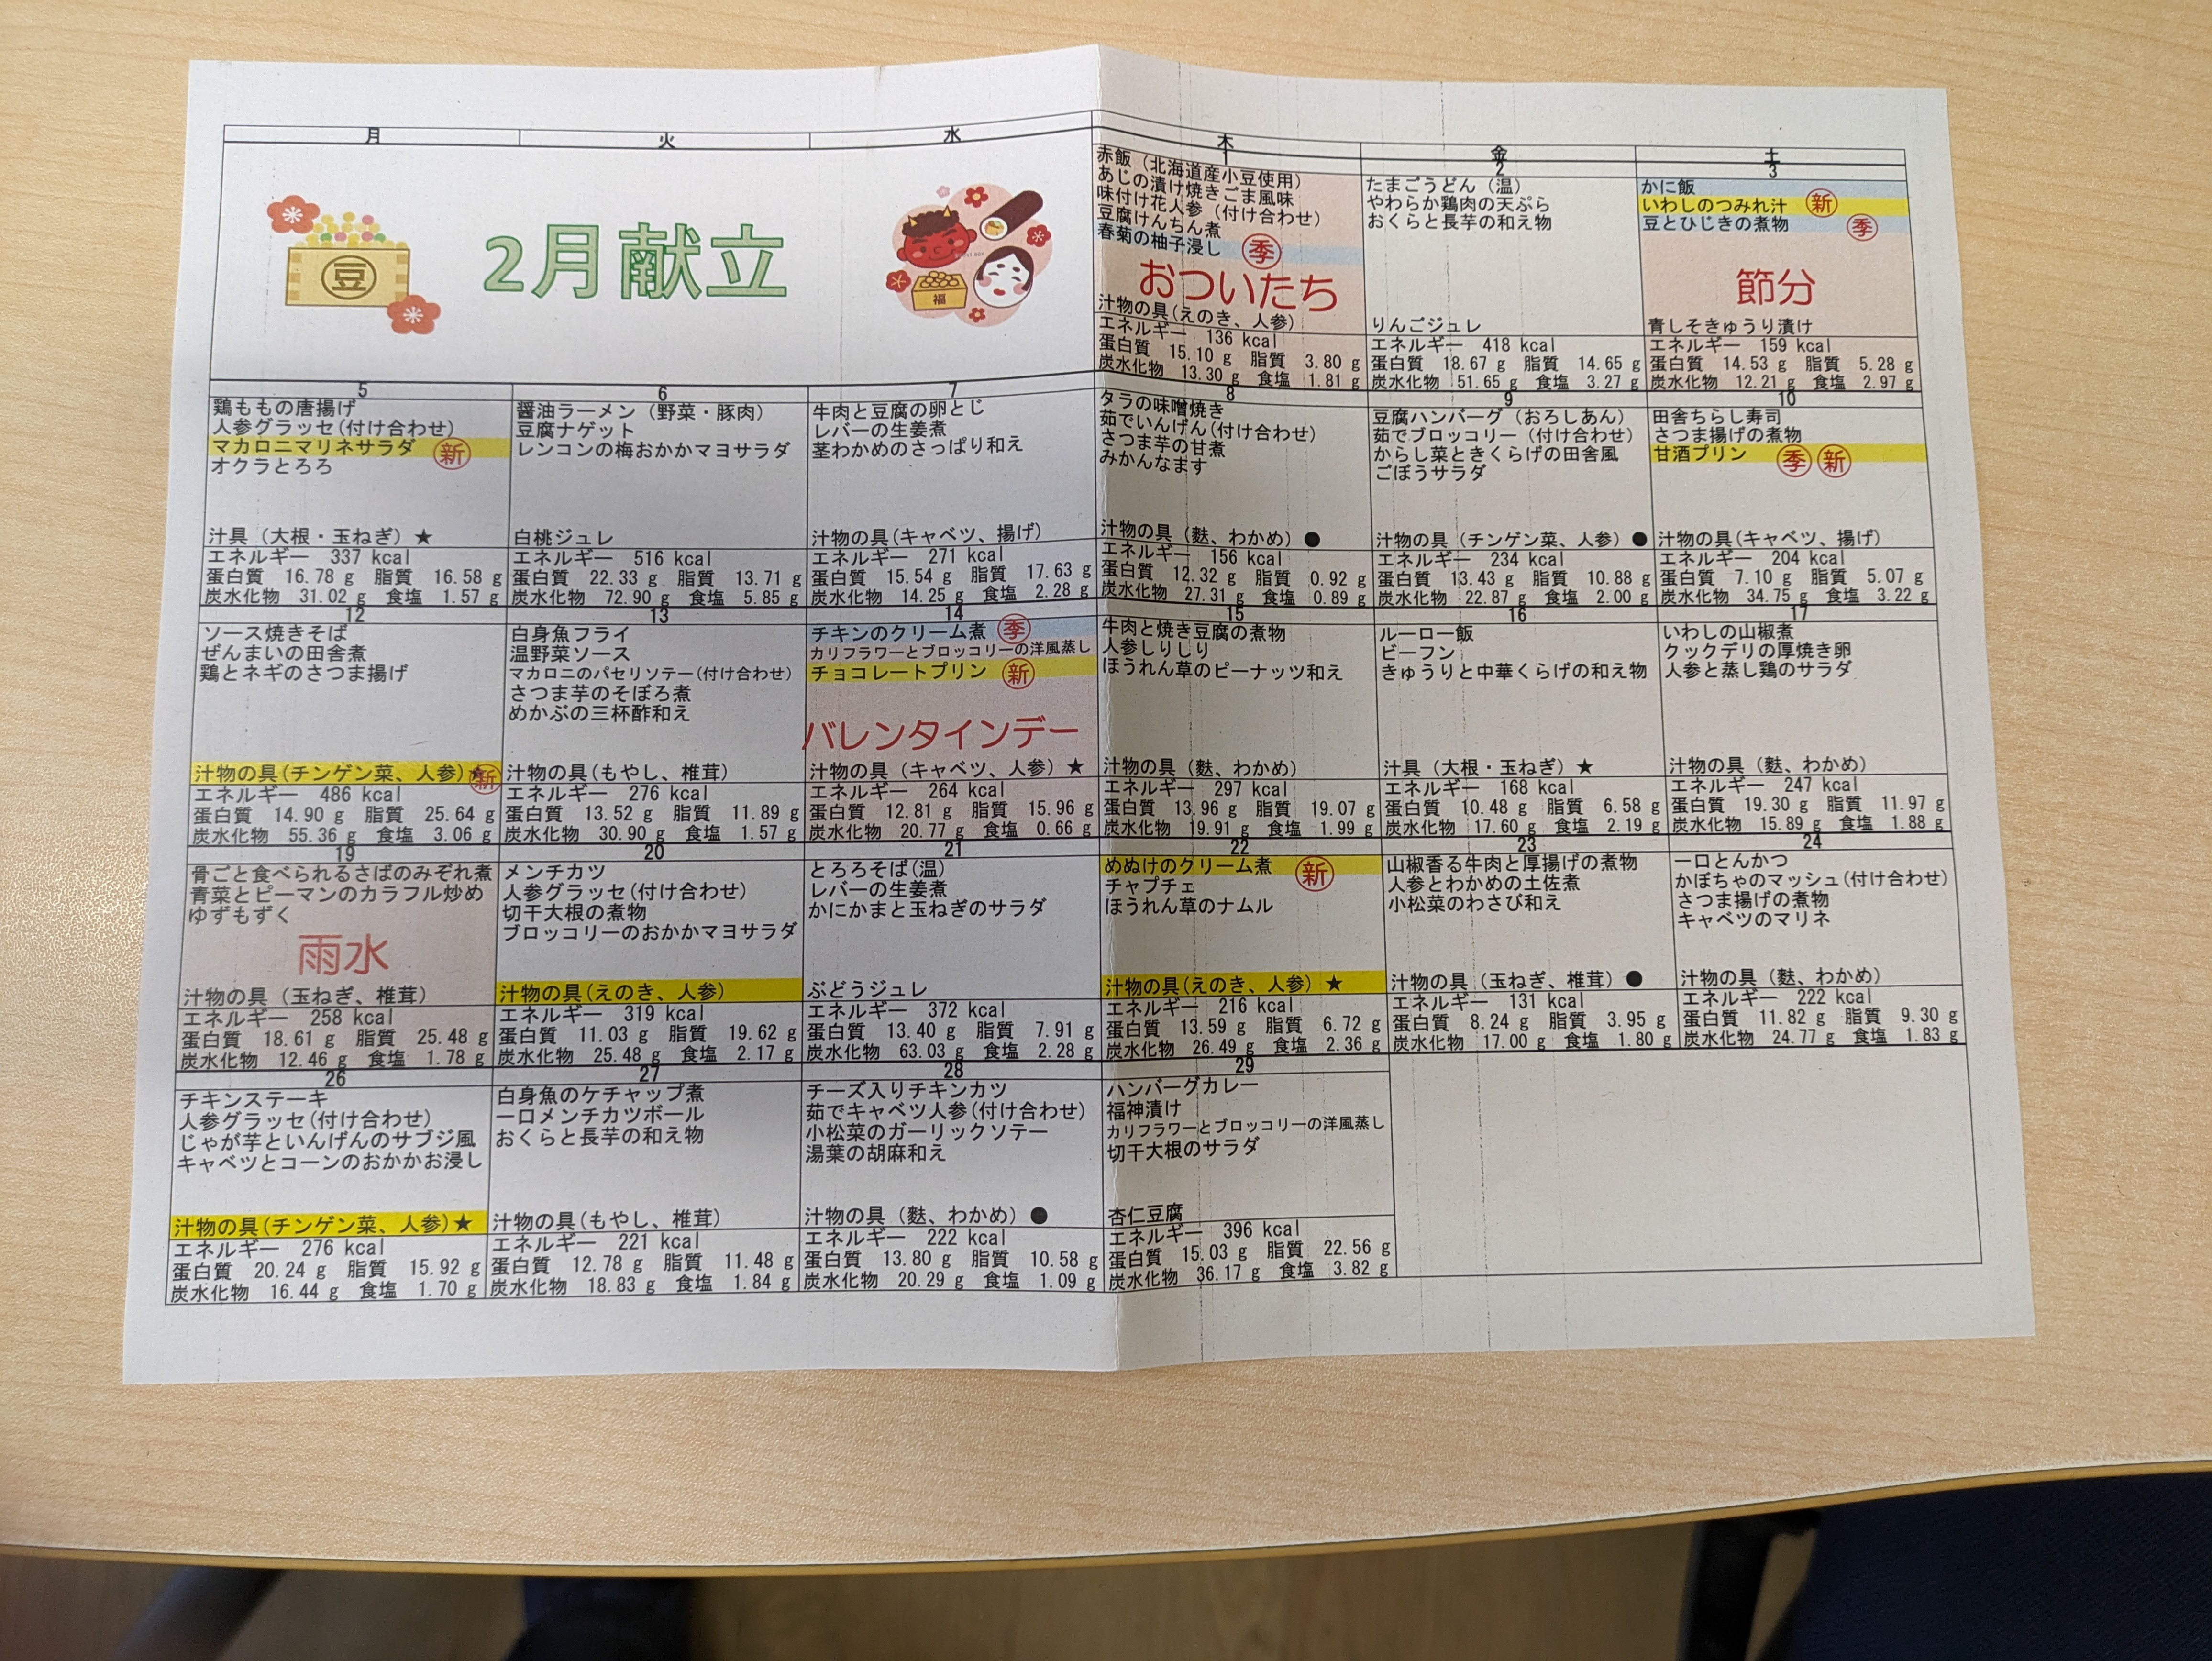 月 火 水 木 金 土
豆
2月献立
福
1
赤飯（北海道産小豆使用）
あじの漬け焼きごま風味
味付け花人参（付け合わせ）
豆腐けんちん煮
春菊の柚子浸し 季
おついたち
汁物の具(えのき、人参)
エネルギー 136 kcal
蛋白質 15.10 g 脂質 3.80 g
炭水化物 13.30 g 食塩 1.81 g
2
たまごうどん（温）
やわらか鶏肉の天ぷら
おくらと長芋の和え物
りんごジュレ
エネルギー 418 kcal
蛋白質 18.67 g 脂質 14.65 g
炭水化物 51.65 g 食塩 3.27 g
3
かに飯
いわしのつみれ汁 新
豆とひじきの煮物 季
節分
青しそきゅうり漬け
エネルギー 159 kcal
蛋白質 14.53 g 脂質 5.28 g
炭水化物 12.21 g 食塩 2.97 g
5
鶏ももの唐揚げ
人参グラッセ(付け合わせ)
マカロニマリネサラダ 新
オクラとろろ
汁具（大根・玉ねぎ）★
エネルギー 337 kcal
蛋白質 16.78 g 脂質 16.58 g
炭水化物 31.02 g 食塩 1.57 g
6
醤油ラーメン（野菜・豚肉）
豆腐ナゲット
レンコンの梅おかかマヨサラダ
白桃ジュレ
エネルギー 516 kcal
蛋白質 22.33 g 脂質 13.71 g
炭水化物 72.90 g 食塩 5.85 g
7
牛肉と豆腐の卵とじ
レバーの生姜煮
茎わかめのさっぱり和え
汁物の具(キャベツ、揚げ)
エネルギー 271 kcal
蛋白質 15.54 g 脂質 17.63 g
炭水化物 14.25 g 食塩 2.28 g
8
タラの味噌焼き
茹でいんげん(付け合わせ)
さつま芋の甘煮
みかんなます
汁物の具（麩、わかめ）●
エネルギー 156 kcal
蛋白質 12.32 g 脂質 0.92 g
炭水化物 27.31 g 食塩 0.89 g
9
豆腐ハンバーグ（おろしあん）
茹でブロッコリー（付け合わせ）
からし菜ときくらげの田舎風
ごぼうサラダ
汁物の具（チンゲン菜、人参）●
エネルギー 234 kcal
蛋白質 13.43 g 脂質 10.88 g
炭水化物 22.87 g 食塩 2.00 g
10
田舎ちらし寿司
さつま揚げの煮物
甘酒プリン 季 新
汁物の具(キャベツ、揚げ)
エネルギー 204 kcal
蛋白質 7.10 g 脂質 5.07 g
炭水化物 34.75 g 食塩 3.22 g
12
ソース焼きそば
ぜんまいの田舎煮
鶏とネギのさつま揚げ
汁物の具(チンゲン菜、人参)★新
エネルギー 486 kcal
蛋白質 14.90 g 脂質 25.64 g
炭水化物 55.36 g 食塩 3.06 g
13
白身魚フライ
温野菜ソース
マカロニのパセリソテー(付け合わせ)
さつま芋のそぼろ煮
めかぶの三杯酢和え
汁物の具(もやし、椎茸)
エネルギー 276 kcal
蛋白質 13.52 g 脂質 11.89 g
炭水化物 30.90 g 食塩 1.57 g
14
チキンのクリーム煮 季
カリフラワーとブロッコリーの洋風蒸し
チョコレートプリン 新
バレンタインデー
汁物の具（キャベツ、人参）★
エネルギー 264 kcal
蛋白質 12.81 g 脂質 15.96 g
炭水化物 20.77 g 食塩 0.66 g
15
牛肉と焼き豆腐の煮物
人参しりしり
ほうれん草のピーナッツ和え
汁物の具（麩、わかめ）
エネルギー 297 kcal
蛋白質 13.96 g 脂質 19.07 g
炭水化物 19.91 g 食塩 1.99 g
16
ルーロー飯
ビーフン
きゅうりと中華くらげの和え物
汁具（大根・玉ねぎ）★
エネルギー 168 kcal
蛋白質 10.48 g 脂質 6.58 g
炭水化物 17.60 g 食塩 2.19 g
17
いわしの山椒煮
クックデリの厚焼き卵
人参と蒸し鶏のサラダ
汁物の具（麩、わかめ）
エネルギー 247 kcal
蛋白質 19.30 g 脂質 11.97 g
炭水化物 15.89 g 食塩 1.88 g
19
骨ごと食べられるさばのみぞれ煮
青菜とピーマンのカラフル炒め
ゆずもずく
雨水
汁物の具（玉ねぎ、椎茸）
エネルギー 258 kcal
蛋白質 18.61 g 脂質 25.48 g
炭水化物 12.46 g 食塩 1.78 g
20
メンチカツ
人参グラッセ(付け合わせ)
切干大根の煮物
ブロッコリーのおかかマヨサラダ
汁物の具(えのき、人参)
エネルギー 319 kcal
蛋白質 11.03 g 脂質 19.62 g
炭水化物 25.48 g 食塩 2.17 g
21
とろろそば(温)
レバーの生姜煮
かにかまと玉ねぎのサラダ
ぶどうジュレ
エネルギー 372 kcal
蛋白質 13.40 g 脂質 7.91 g
炭水化物 63.03 g 食塩 2.28 g
22
めぬけのクリーム煮 新
チャプチェ
ほうれん草のナムル
汁物の具(えのき、人参) ★
エネルギー 216 kcal
蛋白質 13.59 g 脂質 6.72 g
炭水化物 26.49 g 食塩 2.36 g
23
山椒香る牛肉と厚揚げの煮物
人参とわかめの土佐煮
小松菜のわさび和え
汁物の具（玉ねぎ、椎茸）●
エネルギー 131 kcal
蛋白質 8.24 g 脂質 3.95 g
炭水化物 17.00 g 食塩 1.80 g
24
一口とんかつ
かぼちゃのマッシュ(付け合わせ)
さつま揚げの煮物
キャベツのマリネ
汁物の具（麩、わかめ）
エネルギー 222 kcal
蛋白質 11.82 g 脂質 9.30 g
炭水化物 24.77 g 食塩 1.83 g
26
チキンステーキ
人参グラッセ(付け合わせ)
じゃが芋といんげんのサブジ風
キャベツとコーンのおかかお浸し
汁物の具(チンゲン菜、人参)★
エネルギー 276 kcal
蛋白質 20.24 g 脂質 15.92 g
炭水化物 16.44 g 食塩 1.70 g
27
白身魚のケチャップ煮
一口メンチカツボール
おくらと長芋の和え物
汁物の具(もやし、椎茸)
エネルギー 221 kcal
蛋白質 12.78 g 脂質 11.48 g
炭水化物 18.83 g 食塩 1.84 g
28
チーズ入りチキンカツ
茹でキャベツ人参(付け合わせ)
小松菜のガーリックソテー
湯葉の胡麻和え
汁物の具（麩、わかめ）●
エネルギー 222 kcal
蛋白質 13.80 g 脂質 10.58 g
炭水化物 20.29 g 食塩 1.09 g
29
ハンバーグカレー
福神漬け
カリフラワーとブロッコリーの洋風蒸し
切干大根のサラダ
杏仁豆腐
エネルギー 396 kcal
蛋白質 15.03 g 脂質 22.56 g
炭水化物 36.17 g 食塩 3.82 g